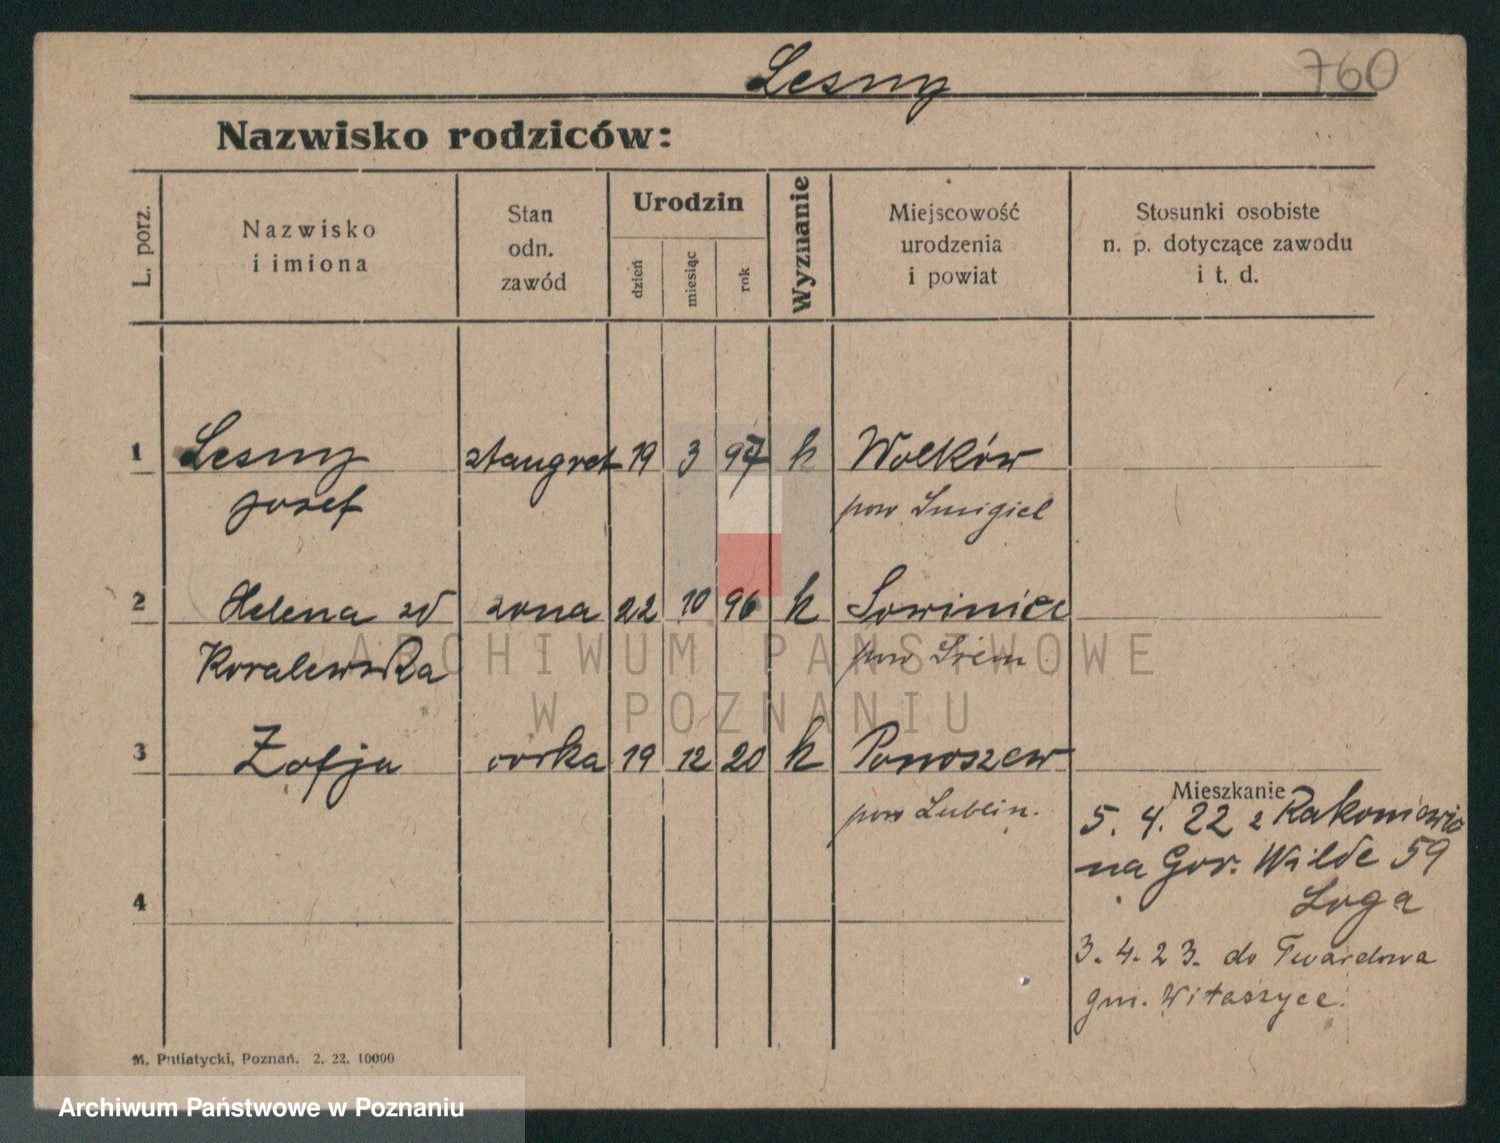 Lesny
760
Nazwisko rodziców:
L. porz.
Nazwisko
i imiona
Stan
odn.
zawód
Urodzin
dzień
miesiąc
rok
Wyznanie
Miejscowość
urodzenia
i powiat
Stosunki osobiste
n. p. dotyczące zawodu
i t. d.
1 Lesny stangret 19 3 97 k Wolków
Josef pow Smigiel
2 Helena zd zona 22 10 96 k Sowiniec
Koralewska pow Śrem
3 Zofja corka 19 12 20 k Ponoszew
pow Lublin.
Mieszkanie
5. 4. 22 z Rakoniewic
na Gor. Wilde 59
Loga
4
3. 4. 23. do Twardowa
gm. Witaszyce.
M. Putiatycki, Poznań. 2. 22. 10000
ARCHIWUM PAŃSTWOWE
W POZNANIU
Archiwum Państwowe w Poznaniu